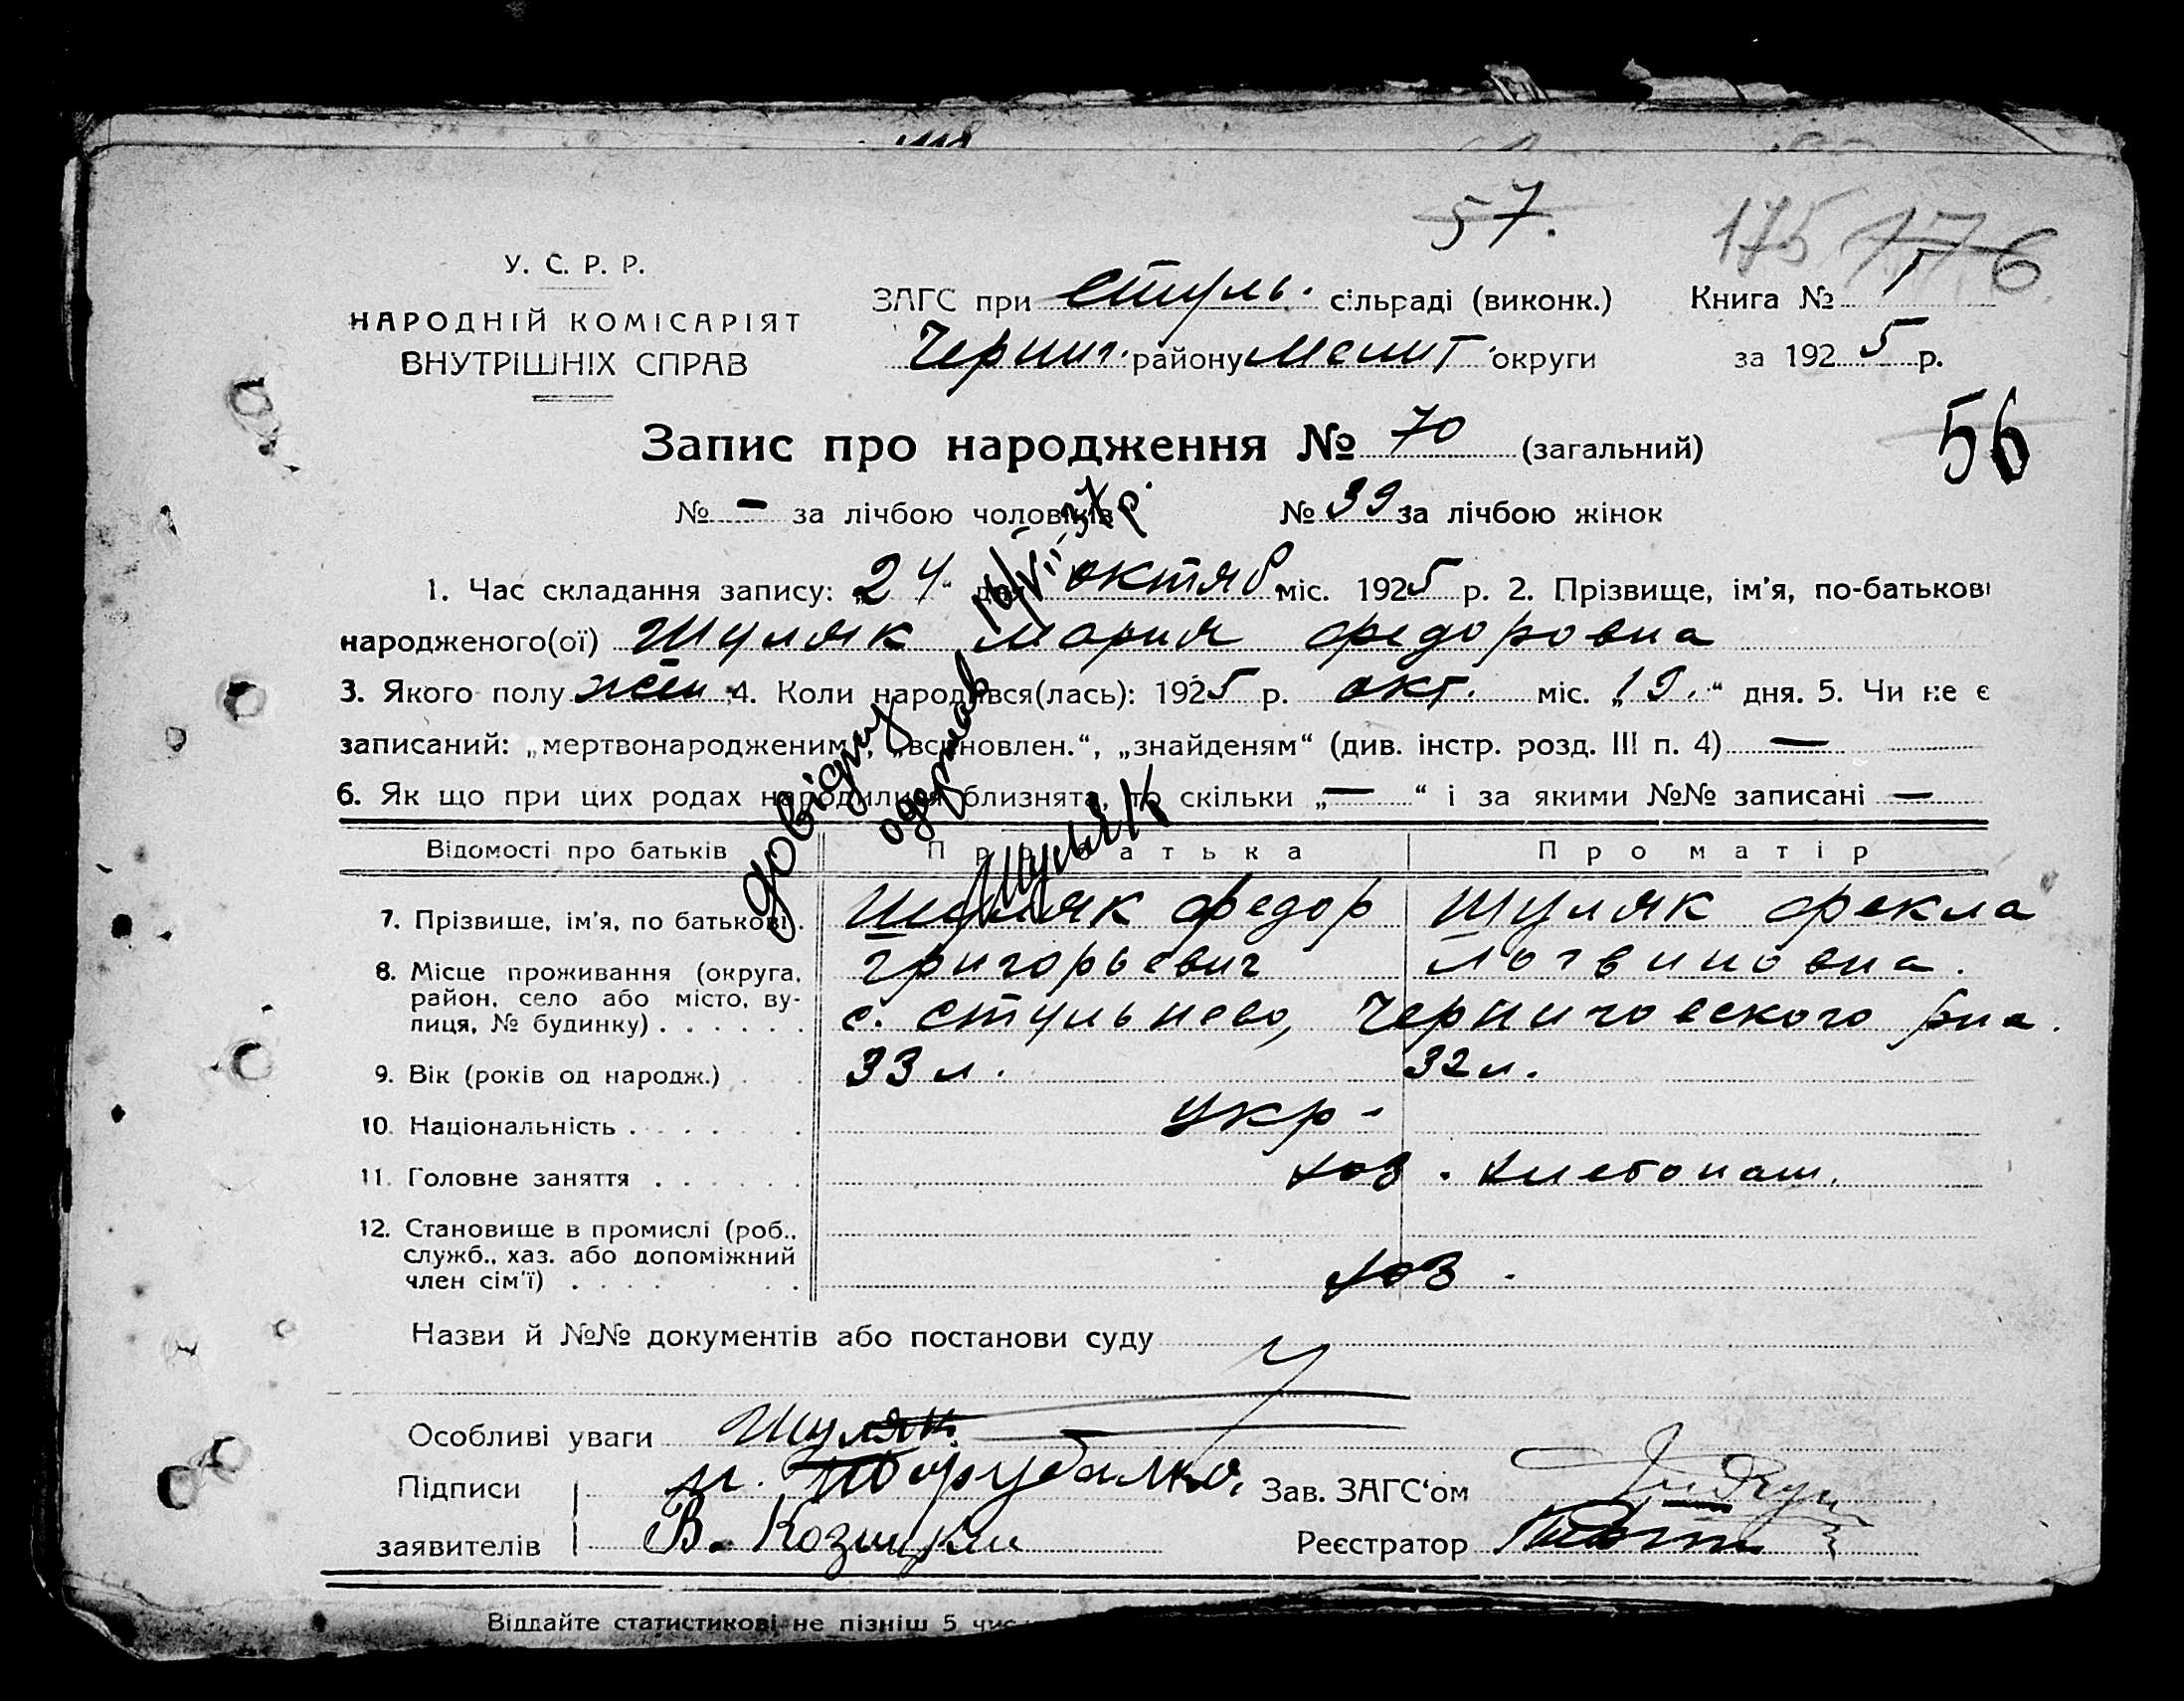 57.
175 176
У. С. Р. Р.
НАРОДНІЙ КОМІСАРІЯТ
ВНУТРІШНІХ СПРАВ
ЗАГС при Стуль. сільраді (виконк.) Книга № 1
Черниг. району Мелит. округи за 1925 р.
56
Запис про народження № 70 (загальний)
№ — за лічбою чоловіків № 39 за лічбою жінок
1. Час складання запису: „24“ дня октяб міс. 1925 р. 2. Прізвище, ім'я, по-батькові
народженого(ої) Шуляк Мария Федоровна
3. Якого полу жен. 4. Коли народився(лась): 1925 р. окт. міс. „19.“ дня. 5. Чи не є
записаний: „мертвонародженим“, „всиновлен.“, „знайденям“ (див. інстр. розд. III п. 4) —
6. Як що при цих родах народилися близнята, то скільки „—“ і за якими №№ записані —
довідку
одержав
Шуляк
Відомості про батьків Про батька Про матір
7. Прізвище, ім'я, по батькові. Шуляк Федор Шуляк Фекла
Григорьевич Логвиновна.
8. Місце проживання (округа,
район, село або місто, ву-
лиця, № будинку) . . . . . . с. Стульнево, Черниговского рна.
9. Вік (років од народж.) 33 л. 32 л.
10. Національність . . . . . укр-
11. Головне заняття . . . . . . хоз. хлебопаш.
12. Становище в промислі (роб.,
служб., хаз. або допоміжний
член сім'ї) . . . . . хоз.
Назви й №№ документів або постанови суду
Особливі уваги Шуляк.
Підписи Зав. ЗАГС'ом
заявителів В. Козицкий Реєстратор
Віддайте статистикові не пізніш 5